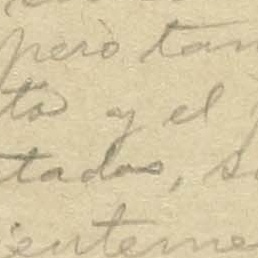 pero tan
to y el
tados, s
ienteme